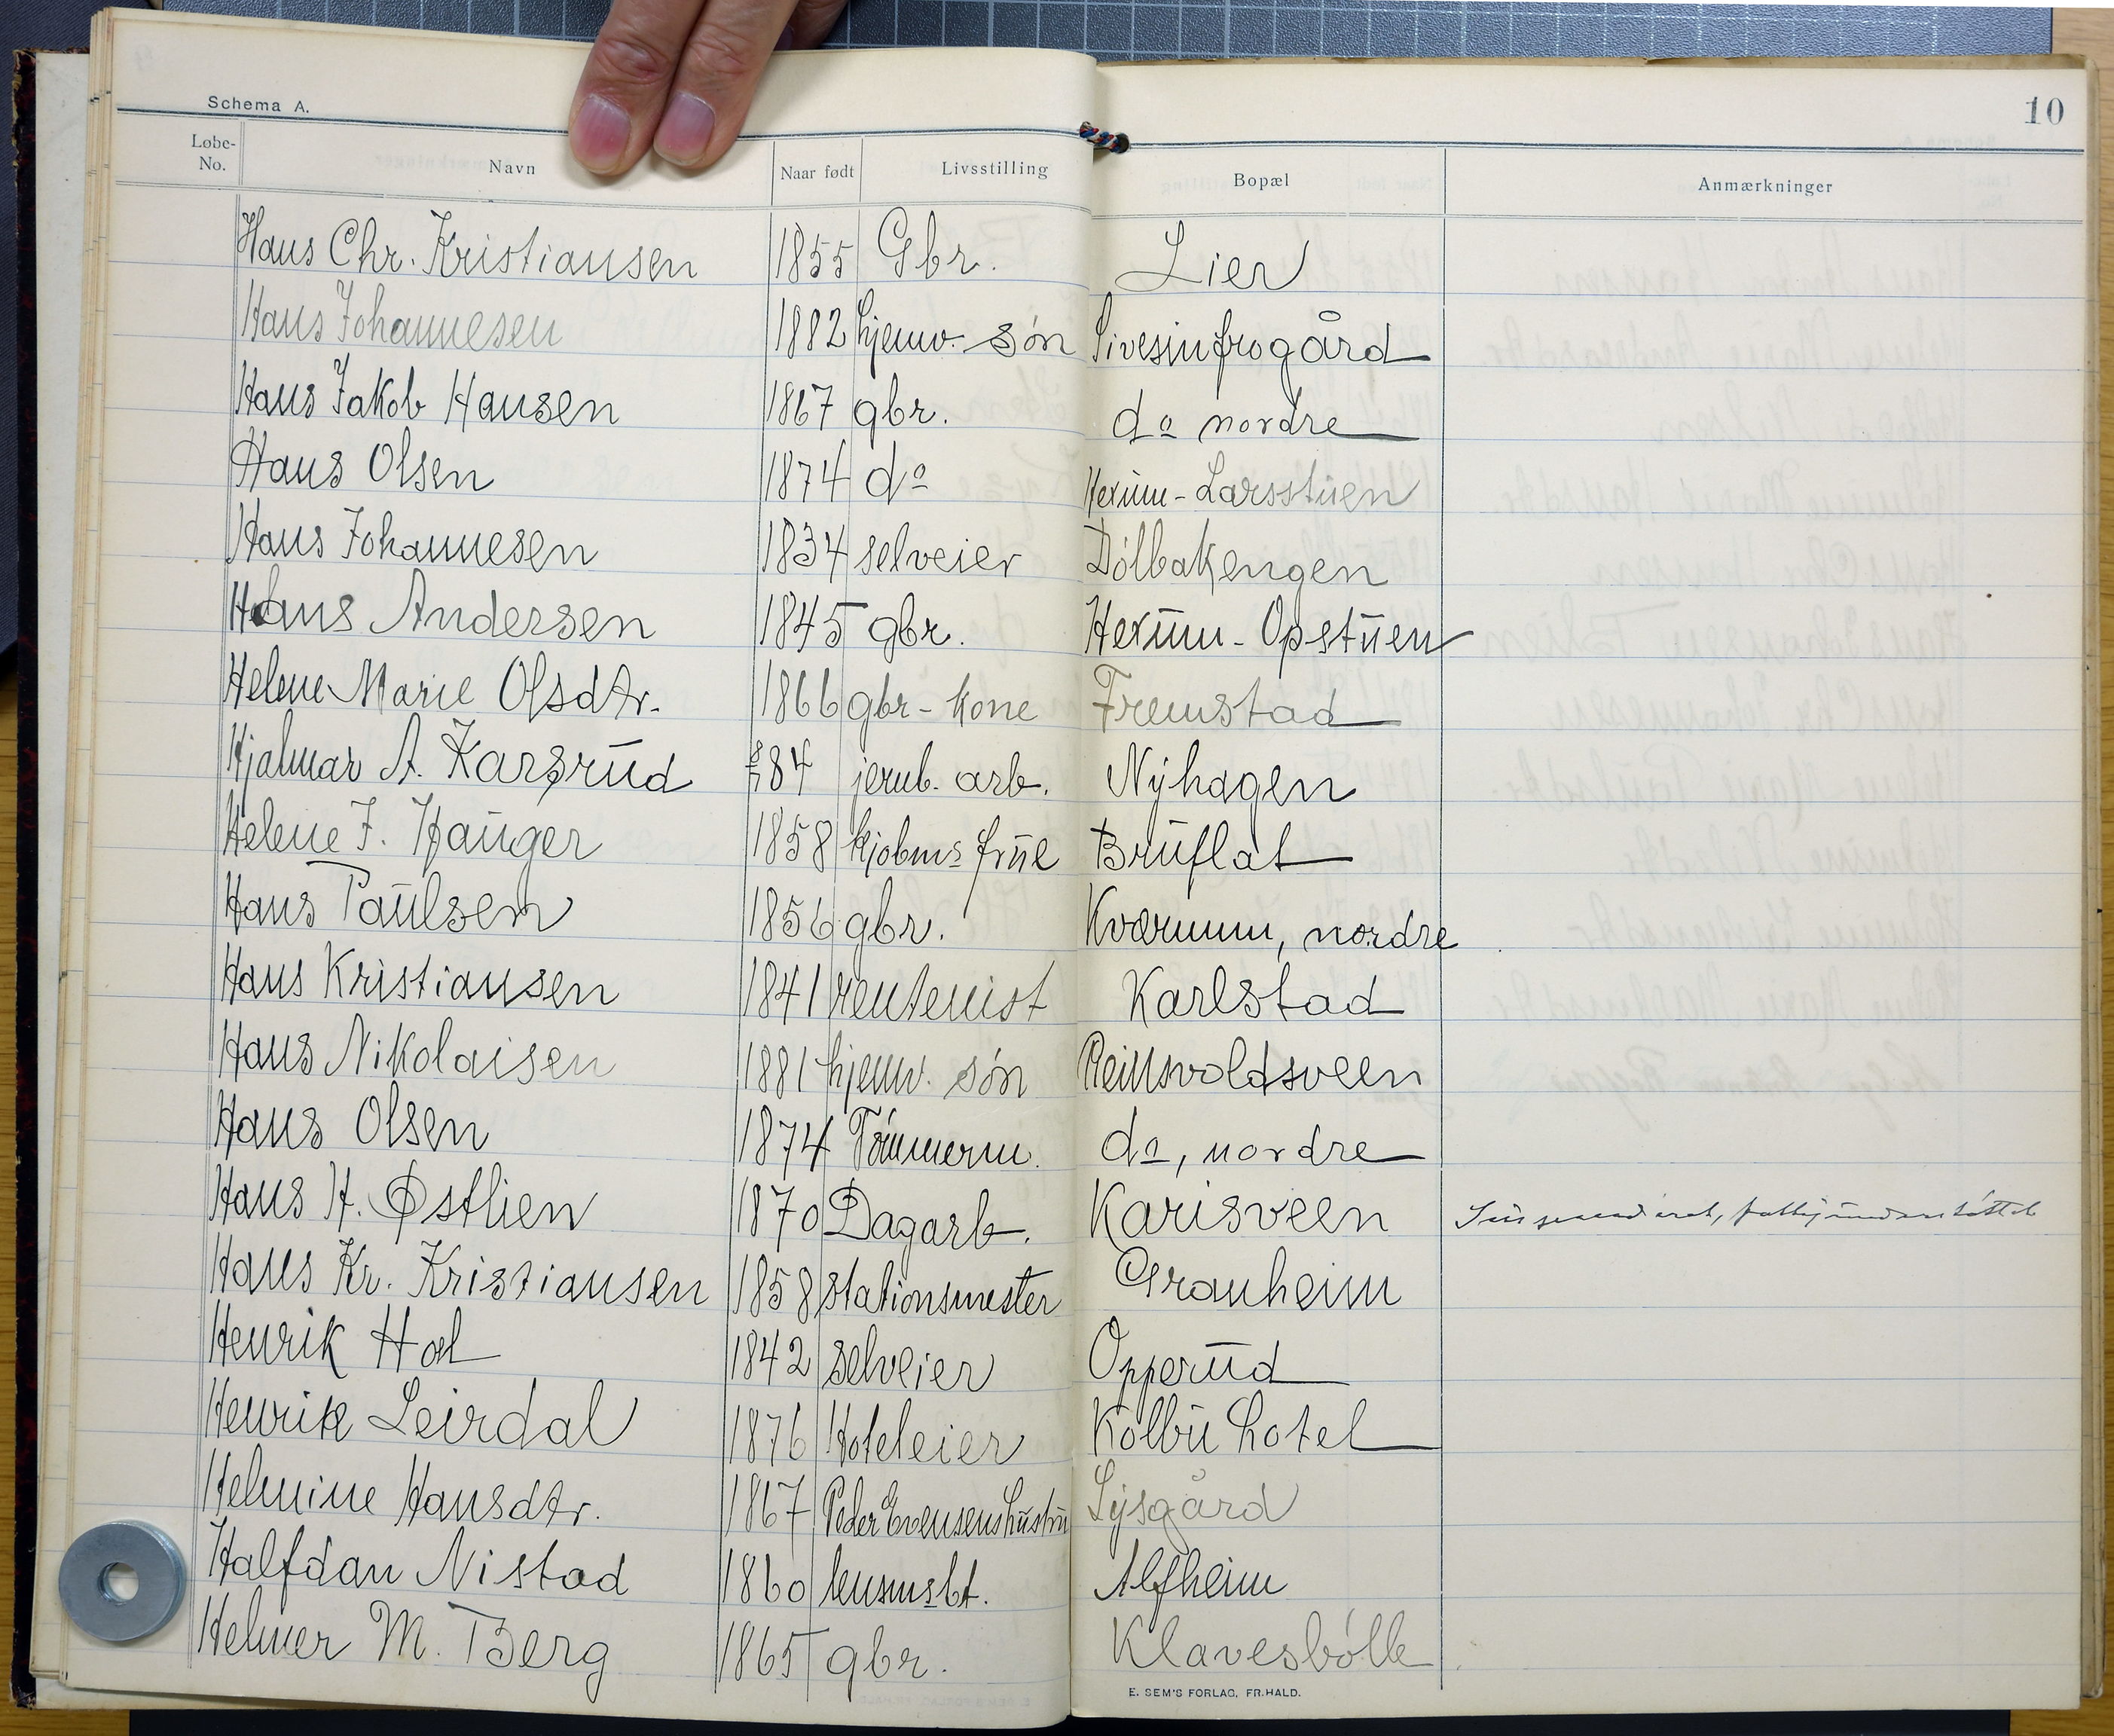 10
Schema A.
Løbe-No. Navn Naar født Livsstilling Bopæl Anmærkninger
Hans Chr. Kristiansen 1855 Gbr. Lier
Hans Johannesen 1882 hjemv. søn Sivesinfrogård
Hans Jakob Hansen 1867 gbr. do nordre
Hans Olsen 1874 do Hexum-Larsstuen
Hans Johannesen 1834 selveier Dølbakengen
Hans Andersen 1845 gbr. Hexum-Opstuen
Helene Marie Olsdtr. 1866 gbr-kone Fremstad
Hjalmar A. Karsrud 84 jernb. arb. Nyhagen
Helene J. Hauger 1858 kjøbms frue Bruflat
Hans Paulsen 1856 gbr. Kværnum, nordre
Hans Kristiansen 1841 rentenist Karlstad
Hans Nikolaisen 1881 hjemv. søn Reinsvoldsveen
Hans Olsen 1874 Tømmerm. do, nordre
Hans H. Østlien 1870 Dagarb. Karisveen Suspenderet, fattigunderstøttet
Hans Kr. Kristiansen 1858 stationsmester Granheim
Henrik Hol 1842 selveier Opperud
Henrik Leirdal 1876 Hoteleier Kolbu hotel
Helmine Hansdtr. 1867 Peder Evensens hustru Lysgård
Halfdan Nistad 1860 lensmsbt. Alfheim
Helmer M. Berg 1865 gbr. Klavesbølle
E. SEM'S FORLAG, FR.HALD.